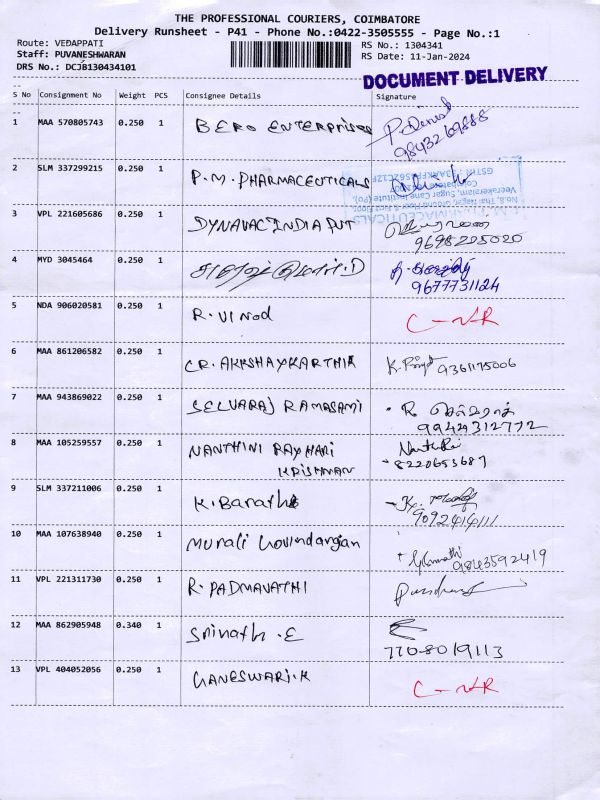 THE PROFESSIONAL COURIERS, COIMBATORE
Delivery Runsheet - P41 - Phone No.:0422-3505555 - Page No.:1
Route: VEDAPPATI
Staff: PUVANESHWARAN
DRS No.: DCJB130434101
RS No.: 1304341
RS Date: 11-Jan-2024
DOCUMENT DELIVERY
S No Consignment No Weight PCS Consignee Details Signature
1 MAA 570805743 0.250 1 BERO ENTERPRISES
9843269888
2 SLM 337299215 0.250 1 P.M. PHARMACEUTICALS
3 VPL 221605686 0.250 1 DYNAVAC INDIA PVT
9698225020
4 MYD 3045464 0.250 1
9677731124
5 NDA 906020581 0.250 1 R. VINOD C-NR
6 MAA 861206582 0.250 1 CR. AKKSHAYKARTHIK K. 9361175006
7 MAA 943869022 0.250 1 SELVARAJ RAMASAMI R. செல்வராஜ்
9944312772
8 MAA 105259557 0.250 1 NANTHINI RAYHARI
KRISHNAN
8220653687
9 SLM 337211006 0.250 1 K. Barath
9092414111
10 MAA 107638940 0.250 1 Murali Govindarajan
9843592419
11 VPL 221311730 0.250 1 R. PADMAVATHI
12 MAA 862905948 0.340 1 Srinath. E
7708019113
13 VPL 404052056 0.250 1 GANESWARI.K C-NR